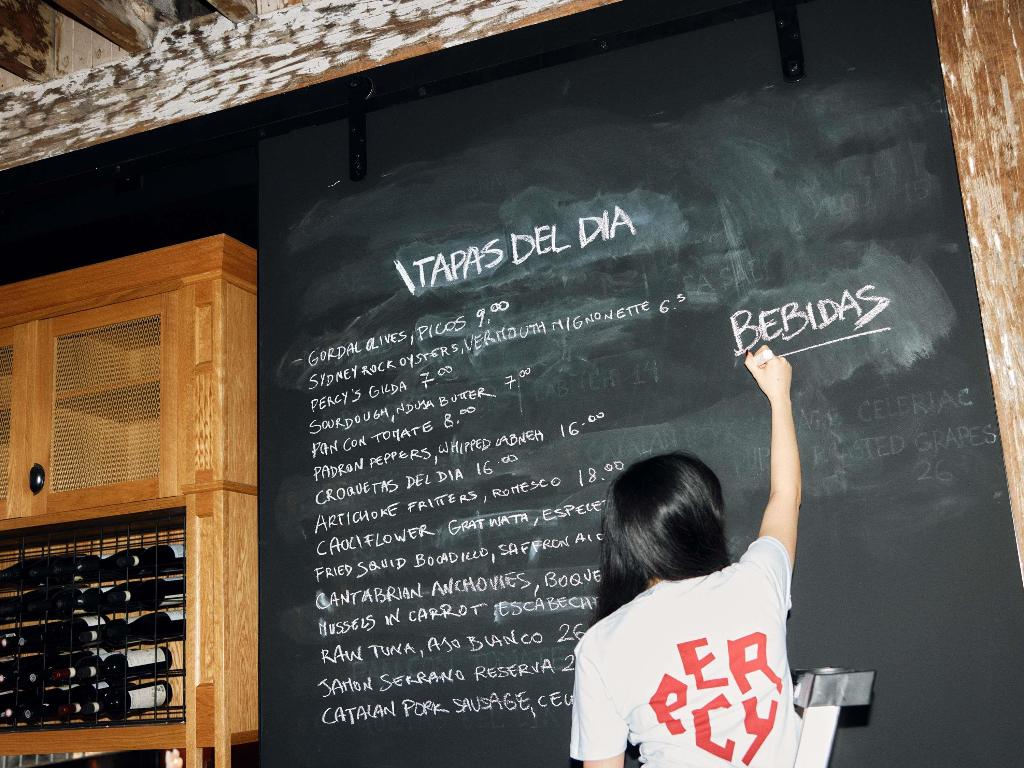 TAPAS DEL DIA
- GORDAL OLIVES, PICOS 9.00
SYDNEY ROCK OYSTERS, VERMOUTH MIGNONETTE 6.5
PERCY'S GILDA 7.00
SOURDOUGH, NDUJA BUTTER 7.00
PAN CON TOMATE 8.00
PADRON PEPPERS, WHIPPED LABNEH 16.00
CROQUETAS DEL DIA 16.00
ARTICHOKE FRITTERS, ROMESCO 18.00
CAULIFLOWER, GRATINATA, ESPECE
FRIED SQUID BOCADILLO, SAFFRON AIO
CANTABRIAN ANCHOVIES, BOQUE
MUSSELS IN CARROT ESCABECH
RAW TUNA, AJO BLANCO 26
JAMON SERRANO RESERVA 2
CATALAN PORK SAUSAGE, CEL
BEBIDAS
CELERIAC
GRAPES
26
PERCY